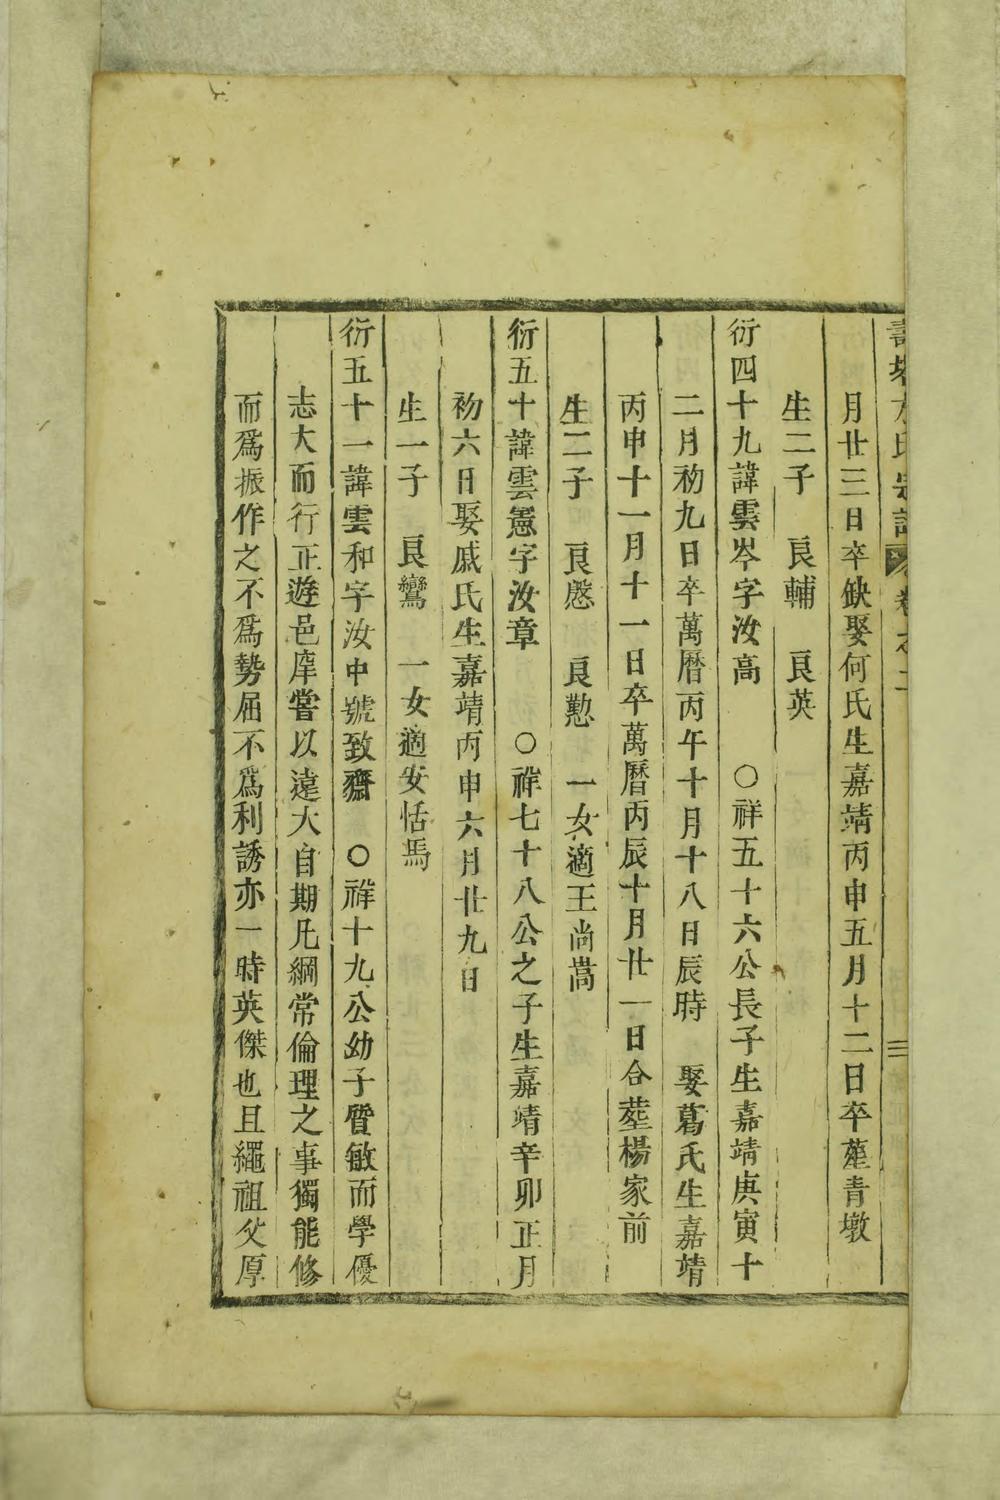 方氏宗譜 卷之二
月廿三日卒缺娶何氏生嘉靖丙申五月十二日卒塟青墩
生二子 良輔 良英
衍四十九諱雲岑字汝高 ○祥五十六公長子生嘉靖庚寅十
二月初九日卒萬曆丙午十月十八日辰時 娶葛氏生嘉靖
丙申十一月十一日卒萬曆丙辰十月廿一日合塟楊家前
生二子 良慇 良懃 一女適王尚蒿
衍五十諱雲憲字汝章 ○祥七十八公之子生嘉靖辛卯正月
初六日娶戚氏生嘉靖丙申六月廿九日
生一子 良鸞 一女適安恬馬
衍五十一諱雲和字汝中號致齋 ○祥十九公幼子質敏而學優
志大而行正遊邑庠嘗以遠大自期凡綱常倫理之事獨能修
而爲振作之不爲勢屈不爲利誘亦一時英傑也且繩祖父厚